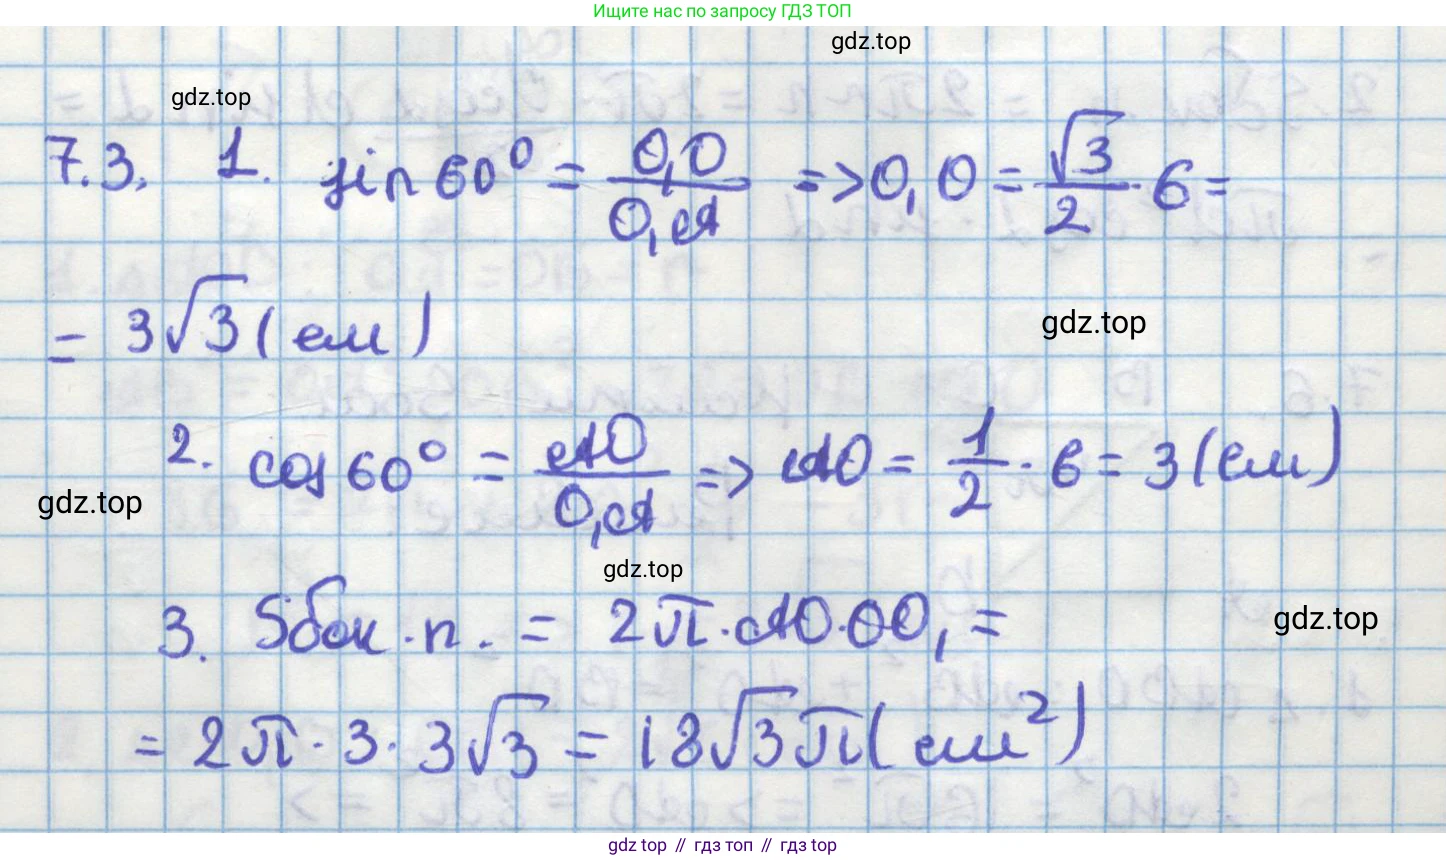 Ищите нас по запросу ГДЗ ТОП
gdz.top
gdz.top
7.3. 1. sin 60° = O₁O / O₁A => O₁O = √3/2 · 6 =
= 3√3 (см)
gdz.top
2. cos 60° = AO / O₁A => AO = 1/2 · 6 = 3 (см)
gdz.top
gdz.top
3. Sбок.п. = 2π · AO · OO₁ =
gdz.top
= 2π · 3 · 3√3 = 18√3π (см²)
gdz top // гдз топ // gdz top